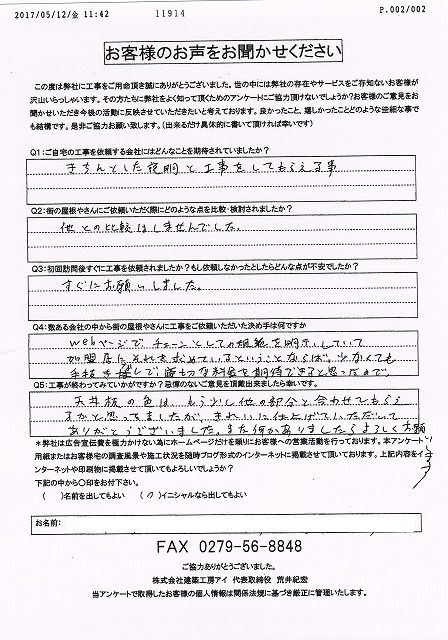 2017/05/12/金 11:42
11914
P.002/002
お客様のお声をお聞かせください
この度は弊社に工事をご用命頂き誠にありがとうございました。世の中には弊社の存在やサービスをご存知ないお客様が
沢山いらっしゃいます。その方たちに弊社をよく知って頂くためのアンケートにご協力頂けないでしょうか?お客様のご意見をお
聞かせいただき今後の活動に反映させていただきたいと考えております。良かったこと、嬉しかったことどのような些細な事で
も結構です。是非ご協力お願い致します。(出来るだけ具体的に書いて頂ければ幸いです)
Q1:ご自宅の工事を依頼する会社にはどんなことを期待されていましたか?
きちんとした説明と工事をしてもらえる事
Q2:街の屋根やさんにご依頼いただく際にどのような点を比較・検討されましたか?
他との比較はしませんでした。
Q3:初回訪問後すぐに工事を依頼されましたか?もし依頼しなかったとしたらどんな点が不安でしたか?
すぐにお願いしました。
Q4:数ある会社の中から街の屋根やさんに工事をご依頼いただいた決め手は何ですか
webページで チェーンとしての規範を明示していて
加盟店にそれを求めているということならば、少なくても
手抜き無しで 適切な料金を期待できると思ったので
Q5:工事が終わってみていかがですか?忌憚のないご意見を頂戴出来ましたら幸いです。
天井板の色は もう少し他の部分と合わせてもらえ
るかと思ってましたが、きれいに仕上げていただいて
ありがとうございました。また何かありましたらよろしくお願
いします
*弊社は広告宣伝費を極力かけない為にホームページだけを頼りにお客様への営業活動を行っております。本アンケート
用紙またはお客様宅の調査風景や施工状況を随時ブログ形式のインターネットに掲載させて頂いております。上記内容をイ
ンターネットや印刷物に掲載させて頂いてもよろしいでしょうか?
下記の中から○印をお付下さい。
( )名前を出してもよい (○)イニシャルなら出してもよい
お名前:
FAX 0279-56-8848
ご協力ありがとうございました。
株式会社建築工房アイ 代表取締役 荒井紀宏
当アンケートで取得したお客様の個人情報は関係法規に基づき厳正に管理いたします。